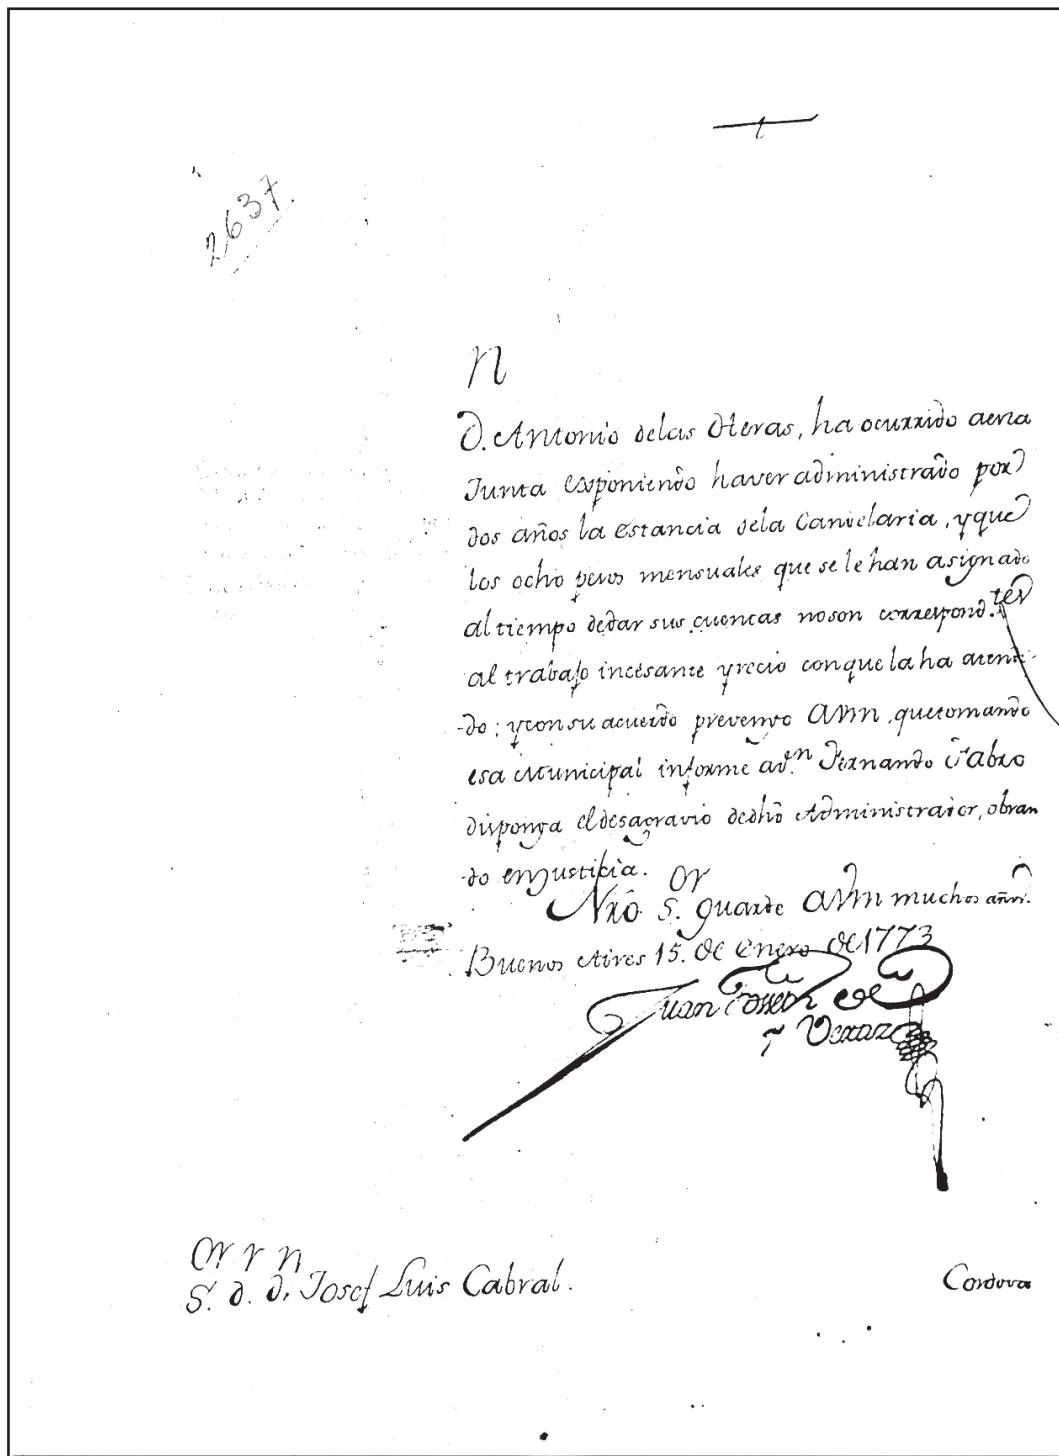 2637
n
D. Antonio delas Heras, ha ocurrido aesta
Junta exponiendo haver administrado por
dos años la estancia dela Candelaria, yque
los ocho pesos mensuales que se le han asignado
al tiempo dedar sus cuentas noson correspond.tes
al trabajo incesante yrecio conque la ha atendi-
-do; yconsu acuerdo prevengo AVm, quetomando
esa Municipal informe ad.n Fernando Fabro
disponga eldesagravio dedho Administrador, obran
-do enjusticia.
Nro S.or guarde AVm muchos años.
Buenos Aires 15. de enero de 1773
Juan Joseph de
Vertiz
S.or d.r d.n Josef Luis Cabral.
Cordova